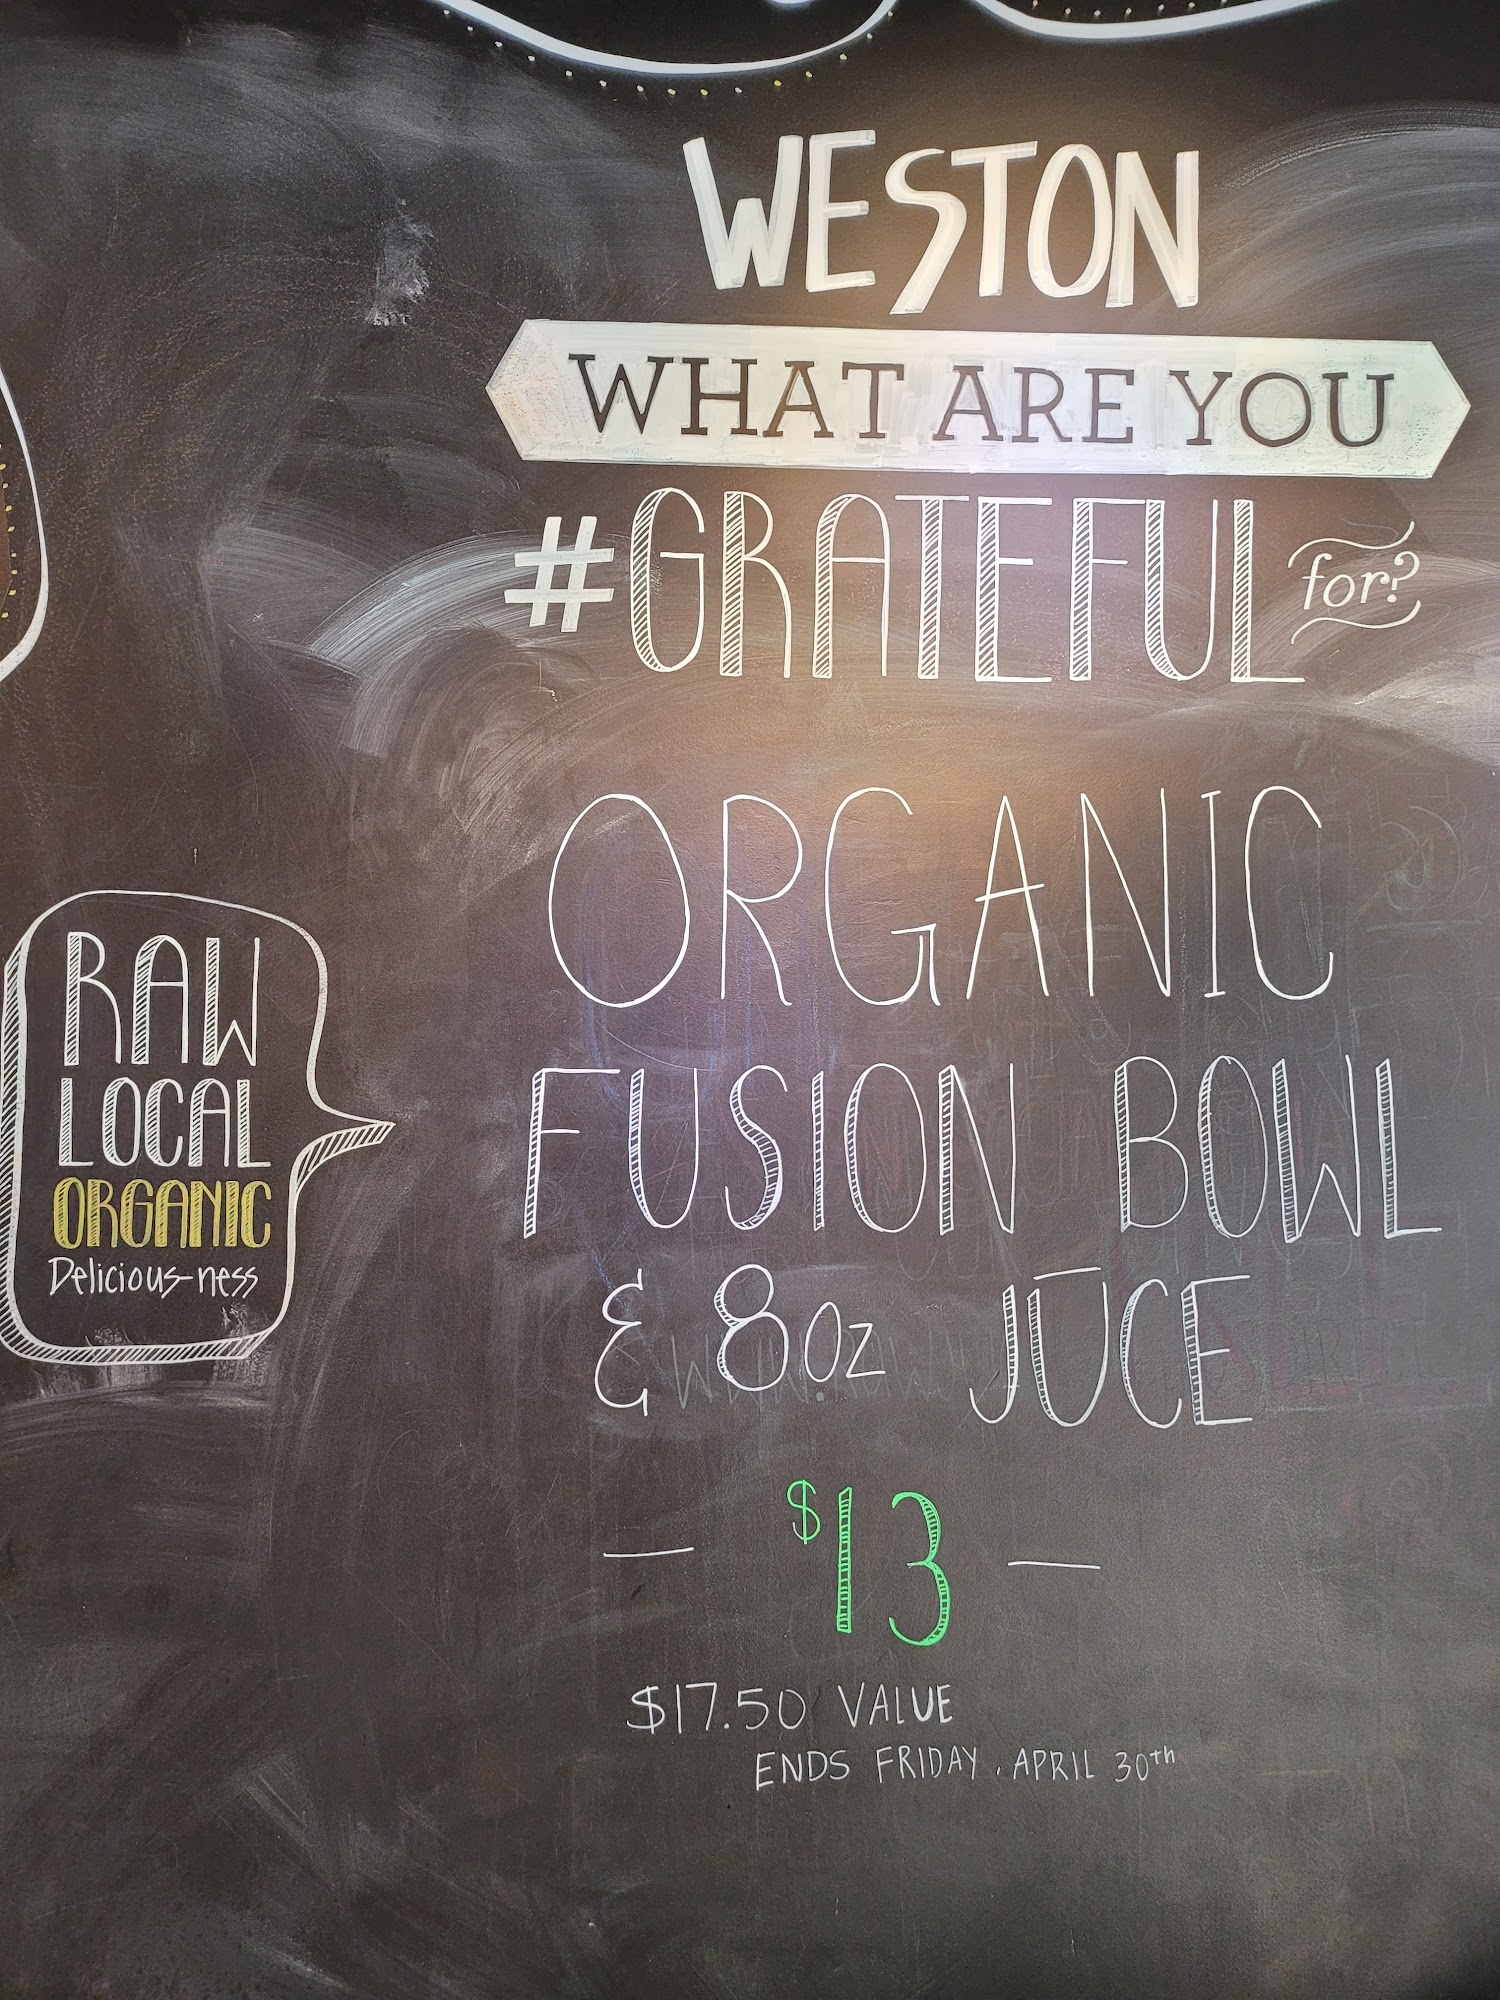 WESTON
WHAT ARE YOU
#GRATEFUL for?
ORGANIC
FUSION BOWL
& 8oz JŪCE
$13
$17.50 VALUE
ENDS FRIDAY, APRIL 30th
RAW
LOCAL
ORGANIC
Delicious-ness